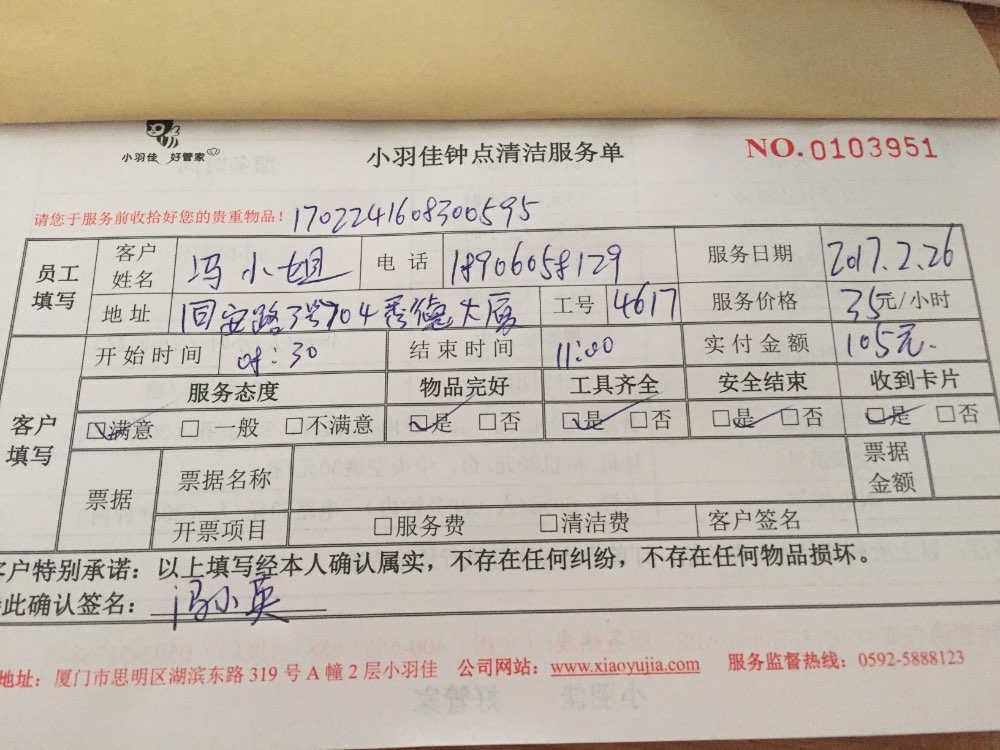 小羽佳 好管家
小羽佳钟点清洁服务单
NO.0103951
请您于服务前收拾好您的贵重物品！ 1702241608300595
员工填写 客户姓名 冯小姐 电话 18906058129 服务日期 2017.2.26
地址 回安路3号704秀德大厦 工号 4617 服务价格 35元/小时
客户填写 开始时间 08:30 结束时间 11:00 实付金额 105元.
服务态度 物品完好 工具齐全 安全结束 收到卡片
☑满意 □一般 □不满意 ☑是 □否 ☑是 □否 ☑是 □否 ☑是 □否
票据 票据名称 票据金额
开票项目 □服务费 □清洁费 客户签名
客户特别承诺：以上填写经本人确认属实，不存在任何纠纷，不存在任何物品损坏。
此确认签名：冯小英
地址：厦门市思明区湖滨东路 319 号 A 幢 2 层小羽佳 公司网站：www.xiaoyujia.com 服务监督热线：0592-5888123